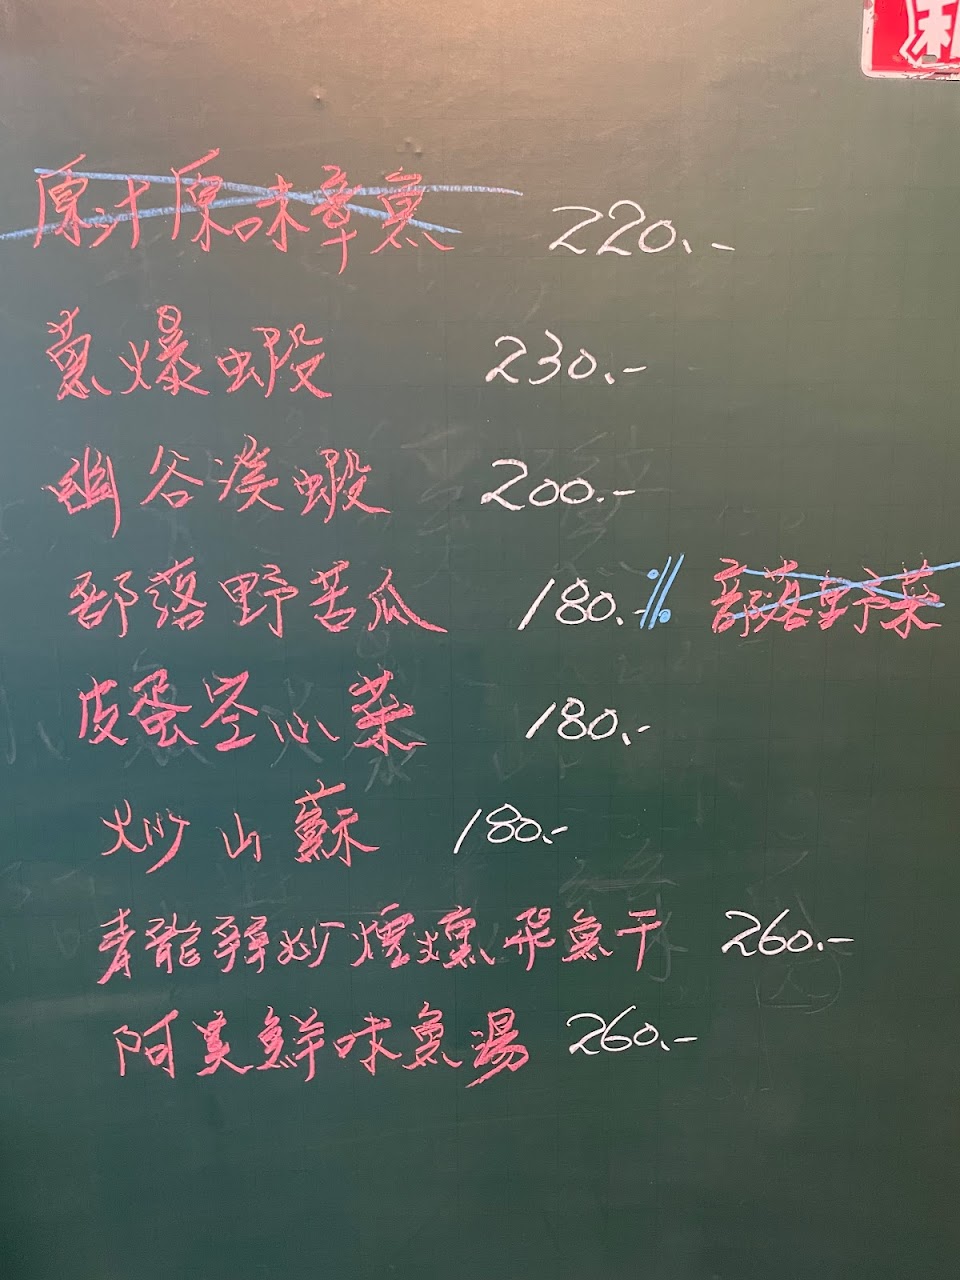 原汁原味章魚 220.-
蔥爆蝦 230.-
幽谷溪蝦 200.-
部落野苦瓜 180.-% 部落野菜
皮蛋空心菜 180.-
炒山蘇 180.-
青龍辣炒煙燻飛魚干 260.-
阿美鮮味魚湯 260.-